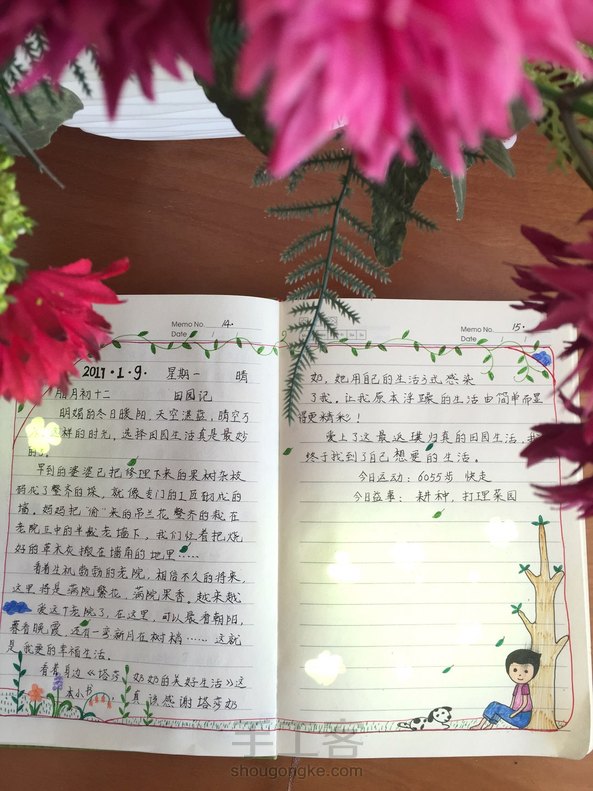 Memo No. 14.
Date / /
2017·1·9. 星期一 晴
腊月初十二 田园记
明媚的冬日暖阳,天空湛蓝,晴空万
样的时光,选择田园生活真是最妙
的
早到的婆婆已把修理下来的果树杂枝
码成了整齐的垛,就像专门的工匠砌成的
墙。妈妈把“偷”来的吊兰花整齐的栽在
老院正中的半截老墙下,我们忙着把烧
好的草木灰搬在墙角的地里……
看着生机勃勃的老院,相信不久的将来,
这里将是满院繁花,满院果香。越来越
爱这个老院了,在这里,可以聚着朝阳,
暮看晚霞,还有一弯新月在树梢……这就
是我要的幸福生活。
看着身边《塔莎奶奶的美好生活》这
本小书 真该感谢塔莎奶
Memo No. 15.
Date / /
奶,她用自己的生活方式感染
了我,让我原本浮躁的生活由简单而显
得更精彩!
爱上了这最返璞归真的田园生活,我
终于找到了自己想要的生活。
今日运动:6055步 快走
今日益事:耕种,打理菜园
手工客
shougongke.com